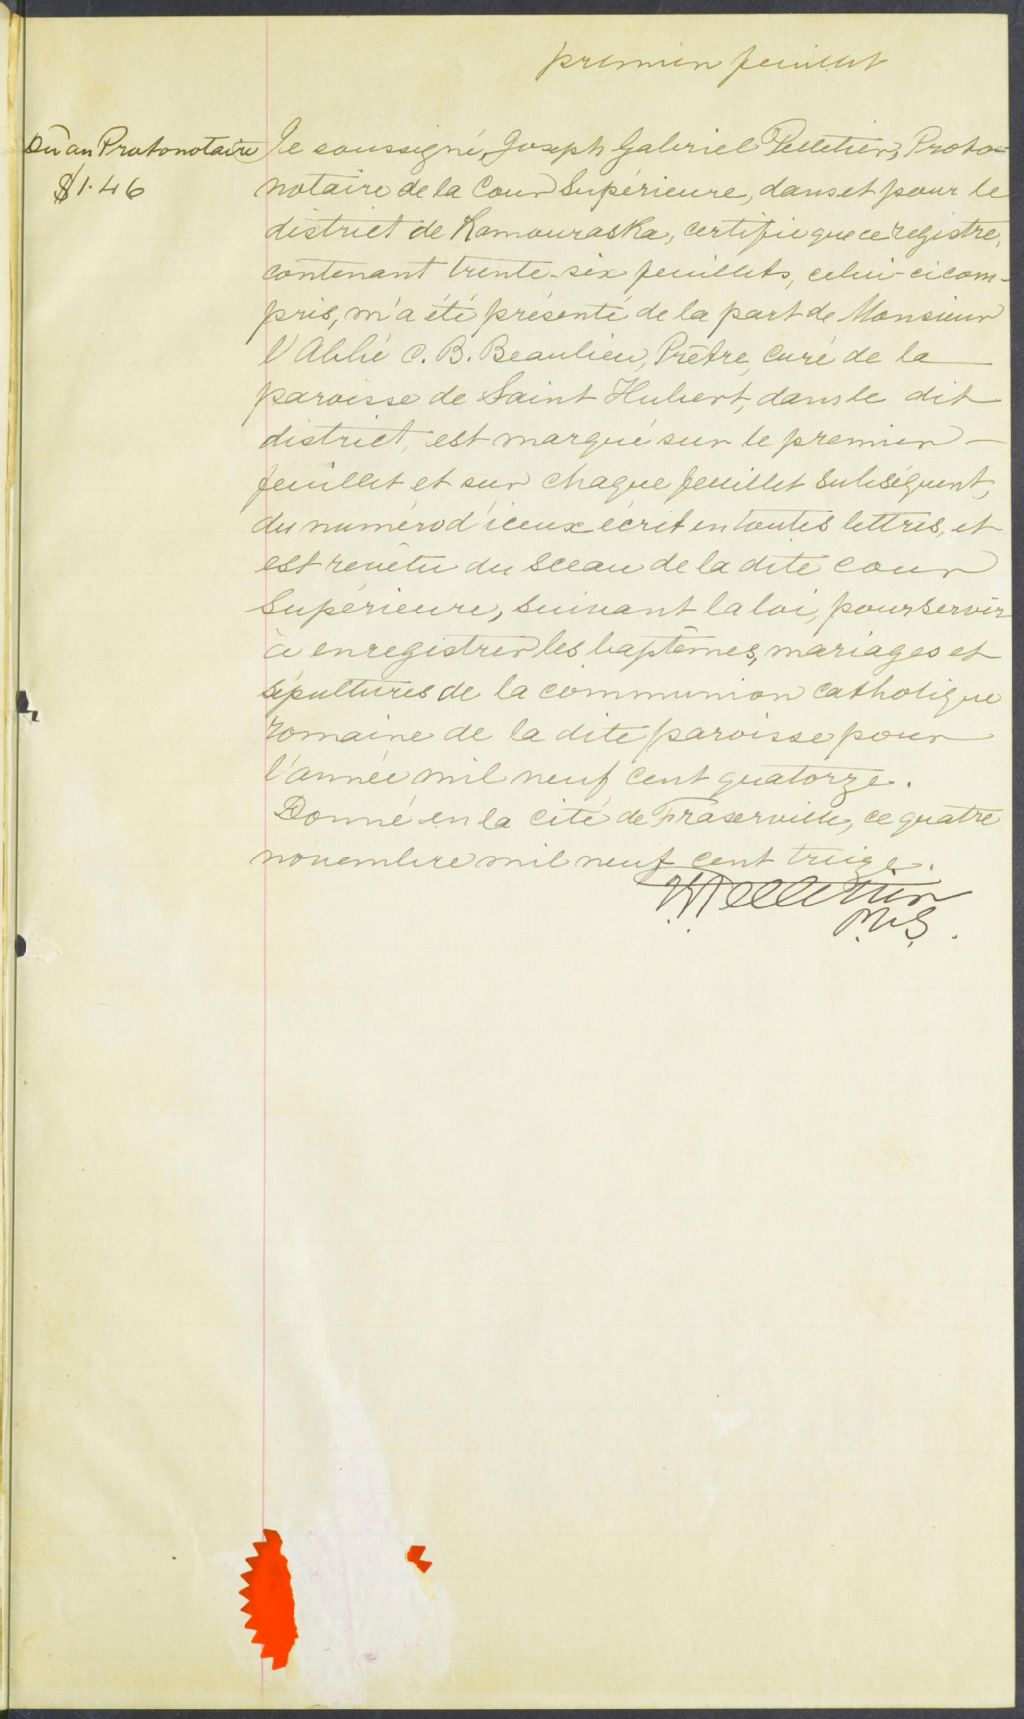 premier feuillet
Dû au Protonotaire
$1.46
Je soussigné, Joseph Gabriel Pelletier, Proto-
notaire de la Cour Supérieure, dans et pour le
district de Kamouraska, certifie que ce registre,
contenant trente-six feuillets, celui-ci com-
pris, m'a été présenté de la part de Monsieur
l'Abbé C. B. Beaulieu, Prêtre, curé de la
paroisse de Saint Hubert, dans le dit
district, est marqué sur le premier —
feuillet et sur chaque feuillet subséquent,
du numéro d'iceux écrit en toutes lettres, et
est revêtu du sceau de la dite cour
Supérieure, suivant la loi, pour servir
à enregistrer les baptêmes, mariages et
sépultures de la communion catholique
romaine de la dite paroisse pour
l'année mil neuf cent quatorze.
Donné en la cité de Fraserville, ce quatre
novembre mil neuf cent treize.
Pelletier
P.C.S.